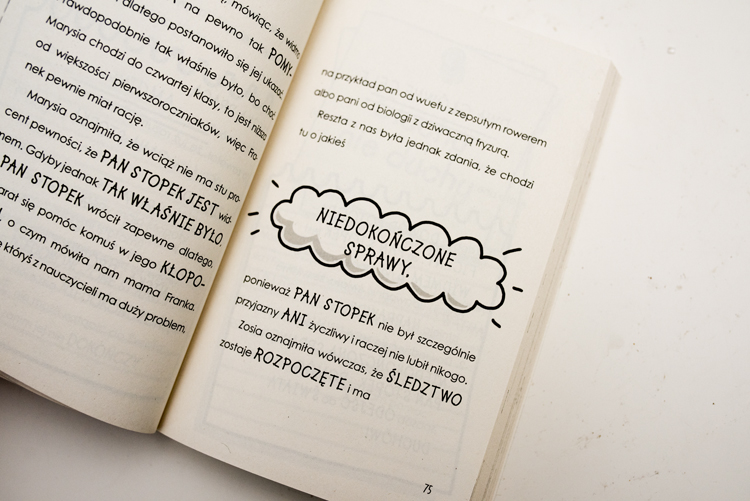 mówiąc, że
na pewno tak POMY-
dlatego postanowiło się jej ukazać
tak właśnie było, bo choć
Marysia chodzi do czwartej klasy, to jest
od większości pierwszoroczniaków, więc
nek pewnie miał rację.
Marysia oznajmiła, że wciąż nie ma stu pro-
cent pewności, że PAN STOPEK JEST wid-
mem. Gdyby jednak TAK WŁAŚNIE BYŁO,
PAN STOPEK wrócił zapewne dlatego,
się pomóc komuś w jego KŁOPO-
o czym mówiła nam mama Franka.
któryś z nauczycieli ma duży problem,
na przykład pan od wuefu z zepsutym rowerem
albo pani od biologii z dziwaczną fryzurą.
Reszta z nas była jednak zdania, że chodzi
tu o jakieś
NIEDOKOŃCZONE
SPRAWY,
ponieważ PAN STOPEK nie był szczególnie
przyjazny ANI życzliwy i raczej nie lubił nikogo.
Zosia oznajmiła wówczas, że ŚLEDZTWO
zostaje ROZPOCZĘTE i ma
75